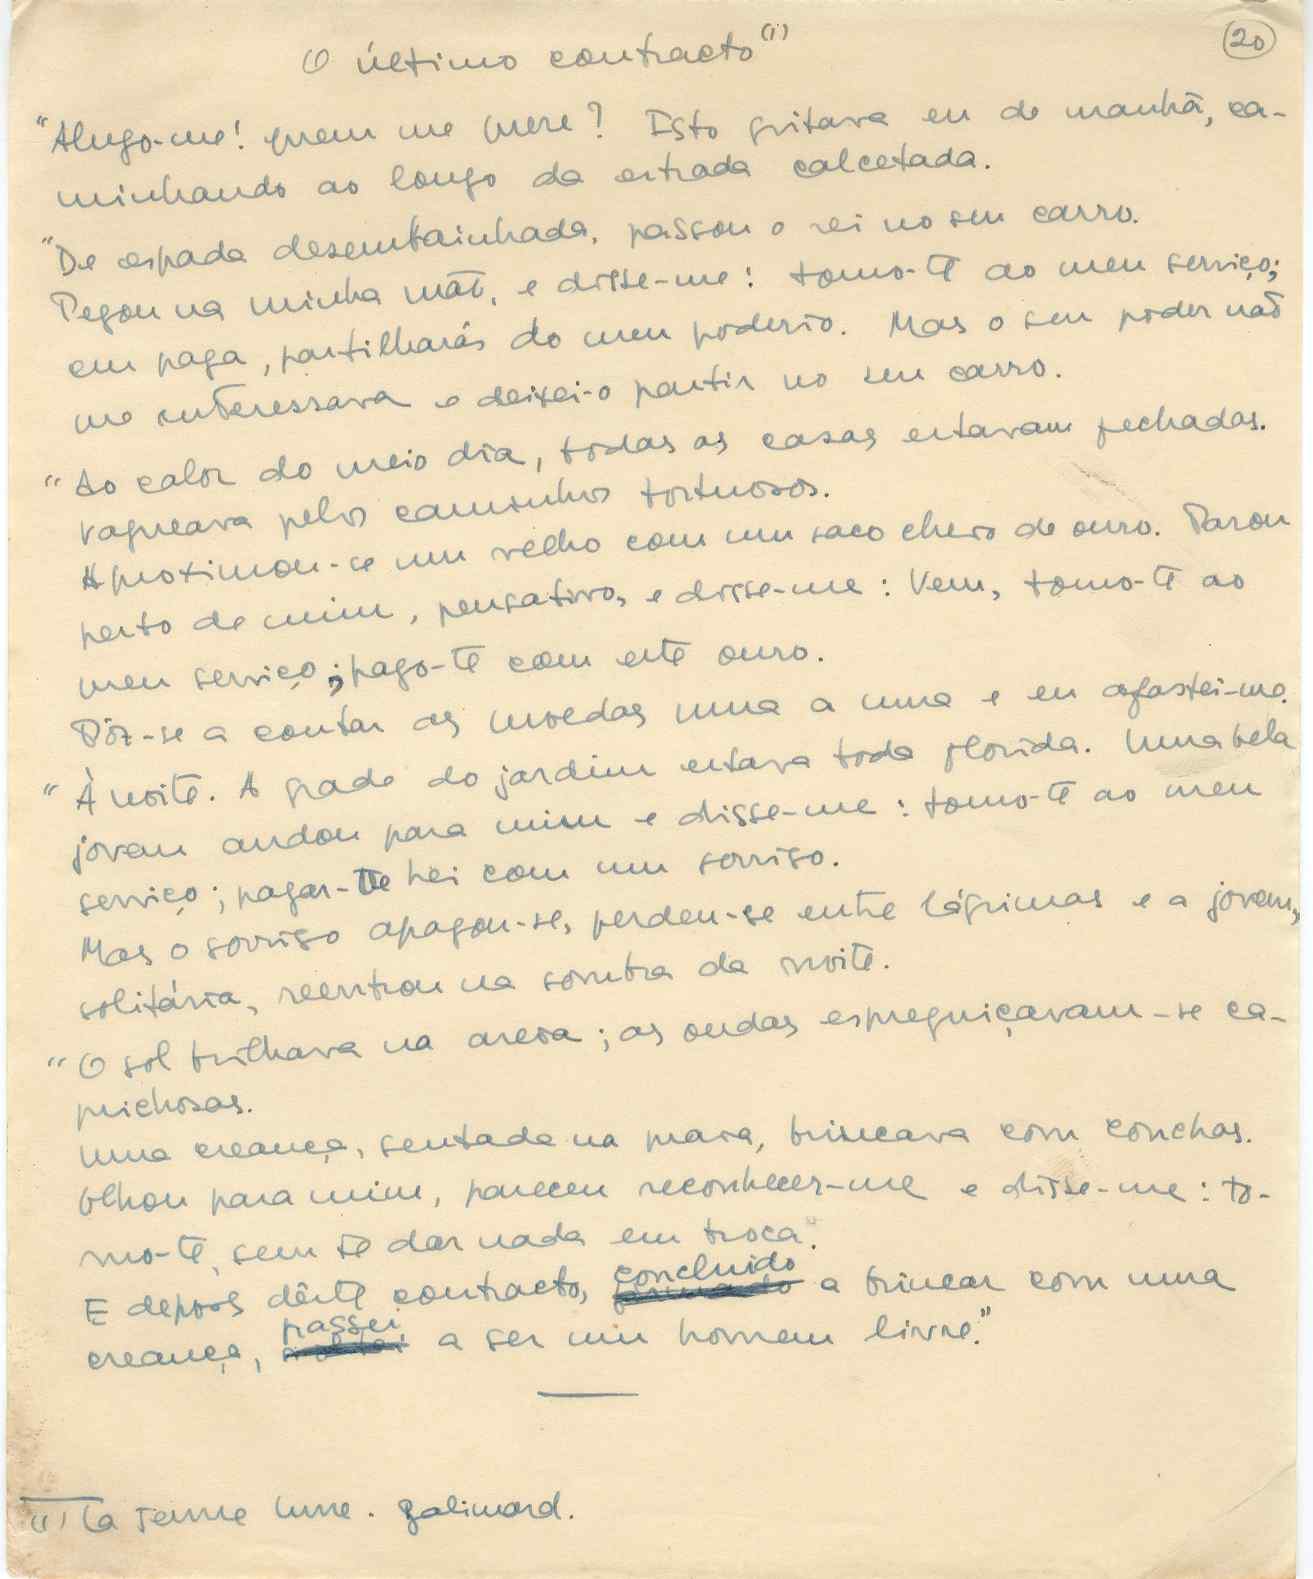 O último contracto (1)
20
"Alugo-me! quem me quere? Isto gritava eu de manhã, ca-
minhando ao longo da estrada calcetada.
"De espada desembainhada, passou o rei no seu carro.
Pegou na minha mão, e disse-me: tomo-te ao meu serviço;
em paga, partilharás do meu poderio. Mas o seu poder não
me interessava e deixei-o partir no seu carro.
"Ao calor do meio dia, todas as casas estavam fechadas.
Vagueava pelos caminhos tortuosos.
Aproximou-se um velho com um saco cheio de ouro. Parou
perto de mim, pensativo, e disse-me: Vem, tomo-te ao
meu serviço; pago-te com este ouro.
Pôz-se a contar as moedas uma a uma e eu afastei-me.
"À noite. A grade do jardim estava toda florida. Uma bela
jovem andou para mim e disse-me: tomo-te ao meu
serviço; pagar-te hei com um sorriso.
Mas o sorriso apagou-se, perdeu-se entre lágrimas e a jovem,
solitária, reentrou na sombra da noite.
"O sol brilhava na areia; as ondas espreguiçavam-se ca-
prichosas.
Uma creança, sentada na praia, brincava com conchas.
Olhou para mim, pareceu reconhecer-me e disse-me: to-
mo-te, sem te dar nada em troca.
E depois dêste contracto, concluido a brincar com uma
creança, passei a ser um homem livre."
(1) La Jeune Lune. Galimard.